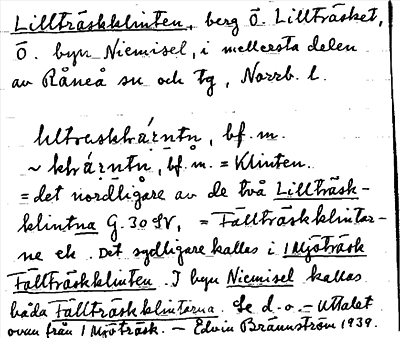 Lillträskklinten, berg Ö. Lillträsket,
Ö. byn Niemisel, i mellersta delen
av Råneå sn och tg, Norrb. l.
bf. m.
~ bf. m. = Klinten.
= det nordligare av de två Lillträsk-
klintna G. 30 SV, = Fällträskklintar-
ne ek. Det sydligare kallas i Mjöträsk
Fällträskklinten. I byn Niemisel kallas
båda Fällträskklintarna. Se d. o. – Uttalet
ovan från Mjöträsk. – Edvin Brännström 1939.